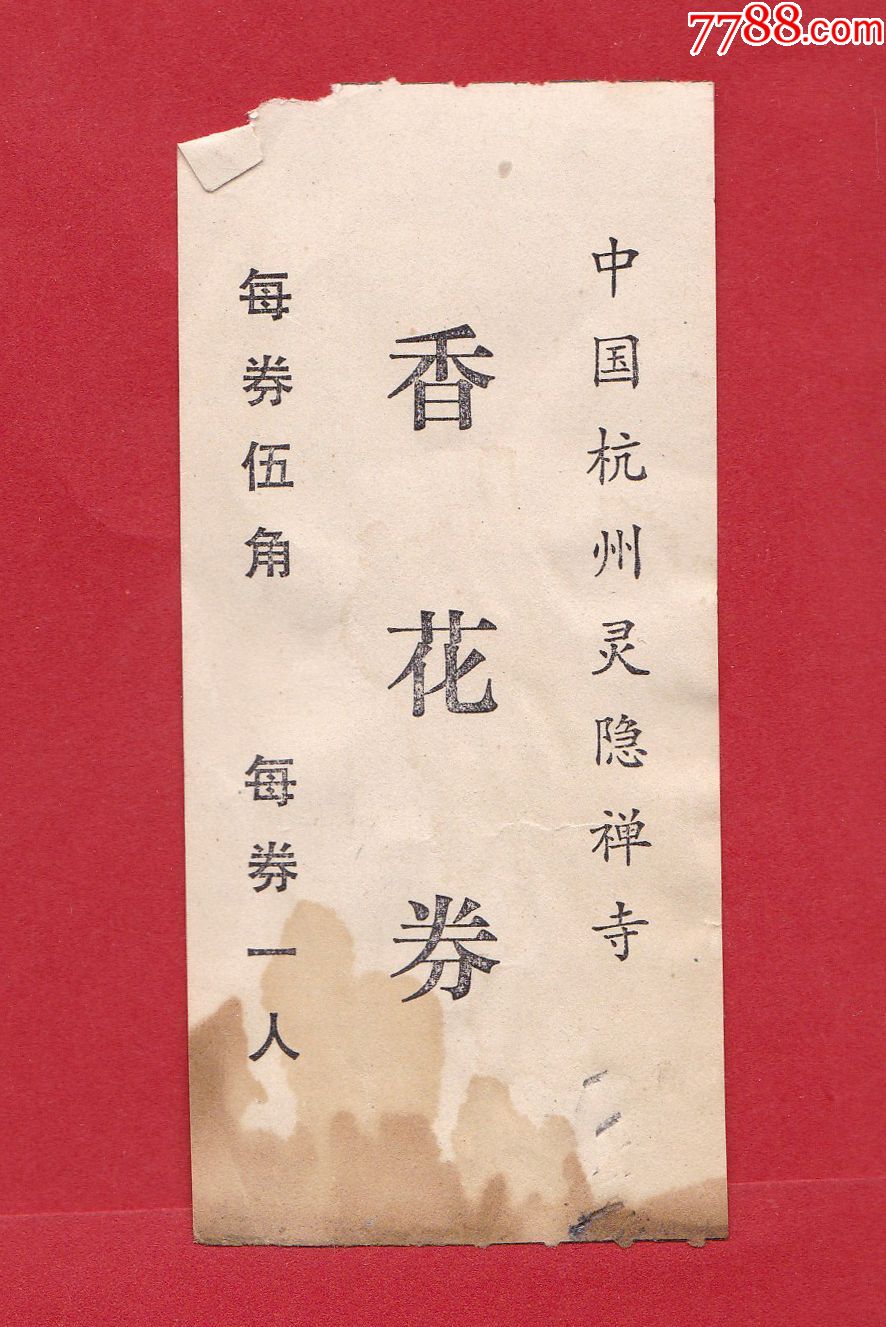 7788.com
中国杭州灵隐禅寺
香花券
每券伍角 每券一人